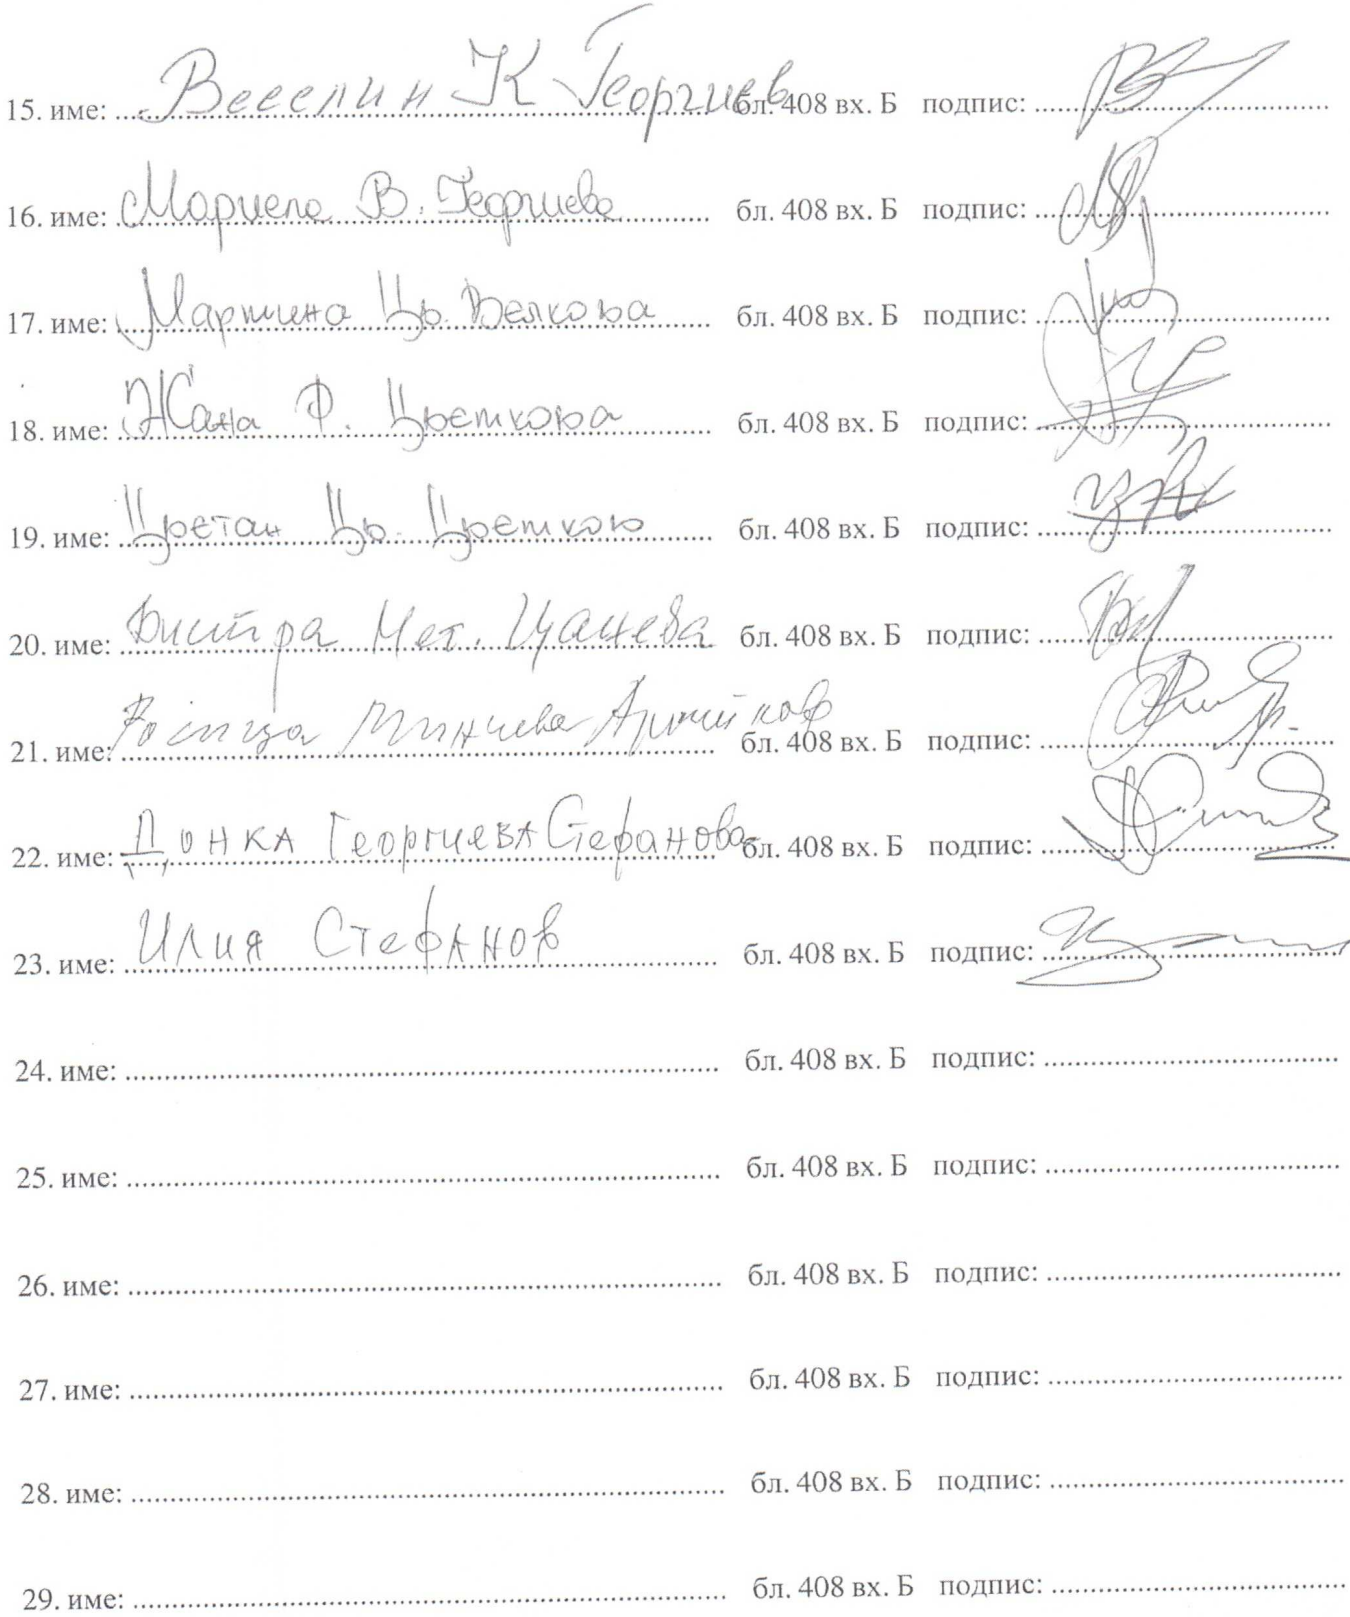 15. име: Веселин К Георгиев бл. 408 вх. Б подпис:
16. име: Мариела В. Георгиева бл. 408 вх. Б подпис:
17. име: Мартина Цв. Велкова бл. 408 вх. Б подпис:
18. име: Жана Ф. Цветкова бл. 408 вх. Б подпис:
19. име: Цветан Цв. Цветков бл. 408 вх. Б подпис:
20. име: Бистра Мет. Цачева бл. 408 вх. Б подпис:
21. име: Росица Минчева бл. 408 вх. Б подпис:
22. име: Донка Георгиева Стефанова бл. 408 вх. Б подпис:
23. име: Илия Стефанов бл. 408 вх. Б подпис:
24. име: бл. 408 вх. Б подпис:
25. име: бл. 408 вх. Б подпис:
26. име: бл. 408 вх. Б подпис:
27. име: бл. 408 вх. Б подпис:
28. име: бл. 408 вх. Б подпис:
29. име: бл. 408 вх. Б подпис: